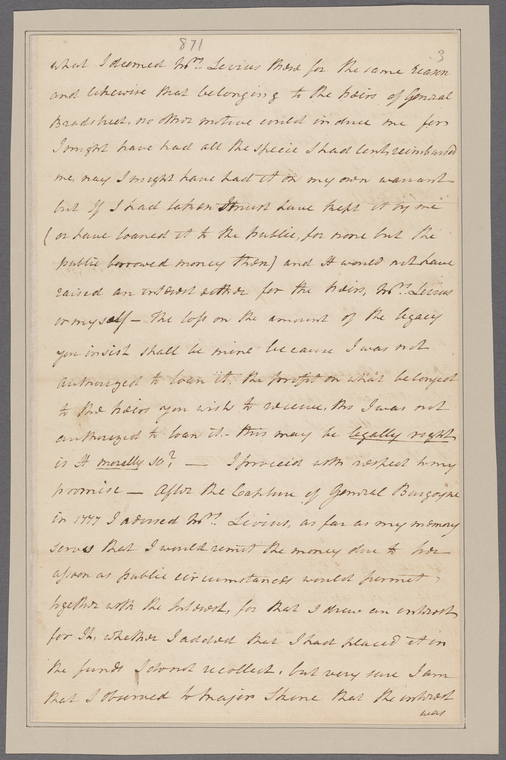 871
3
what I deemed Mrs. Levius there for the same reason
and likewise that belonging to the heirs of General
Bradstreet, no other motive could induce me for
I might have had all the specie I had lent reimbursed
me, nay I might have had it on my own warrant
but if I had taken It must have kept it by me
(or have loaned it to the public, for none but the
public borrowed money then) and It would not have
raised an interest either for the heirs, Mrs. Levius
or myself – The loss on the amount of the legacy
you insist shall be mine because I was not
authorized to loan it, the profit on what belonged
to the heirs you wish to receive, tho I was not
authorized to loan it. – this may be legally right
is It morally so? — I proceed with respect to my
promise – After the Capture of General Burgoyne
in 1777 I advised Mrs. Levius, as far as my memory
serves that I would remit the money due to her
as soon as public circumstances would permit,
together with the Interest, for that I drew an interest
for It, whether I added that I had placed it in
the funds I do not recollect, but very sure I am
that I observed to Major Skene that the interest
was